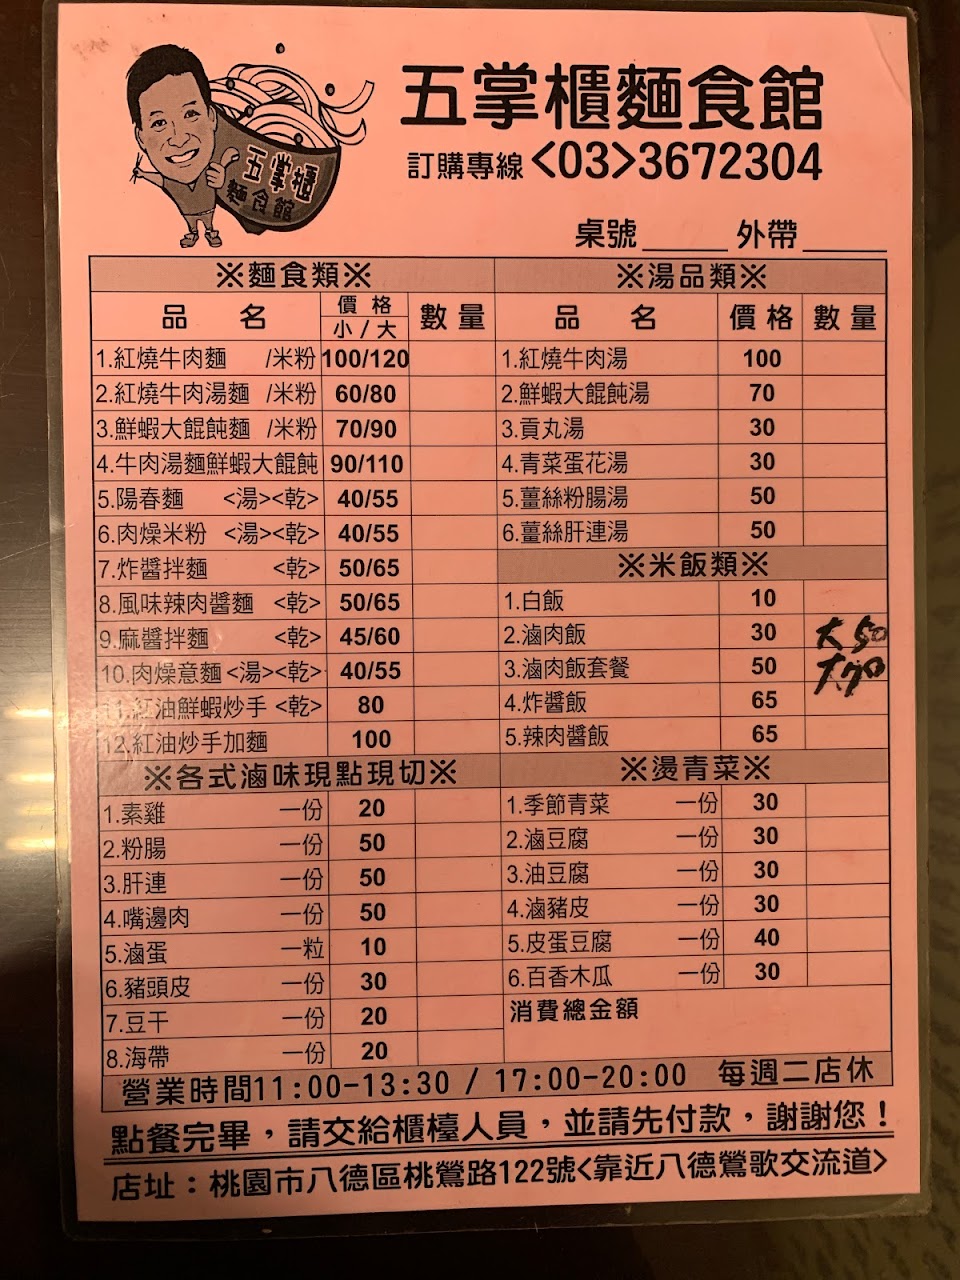 五掌櫃
麵食館
五掌櫃麵食館
訂購專線<03>3672304
桌號 外帶
※麵食類※
品 名 價格 小/大 數量
1.紅燒牛肉麵 /米粉 100/120
2.紅燒牛肉湯麵 /米粉 60/80
3.鮮蝦大餛飩麵 /米粉 70/90
4.牛肉湯麵鮮蝦大餛飩 90/110
5.陽春麵 <湯><乾> 40/55
6.肉燥米粉 <湯><乾> 40/55
7.炸醬拌麵 <乾> 50/65
8.風味辣肉醬麵 <乾> 50/65
9.麻醬拌麵 <乾> 45/60
10.肉燥意麵<湯><乾> 40/55
11.紅油鮮蝦炒手 <乾> 80
12.紅油炒手加麵 100
※各式滷味現點現切※
1.素雞 一份 20
2.粉腸 一份 50
3.肝連 一份 50
4.嘴邊肉 一份 50
5.滷蛋 一粒 10
6.豬頭皮 一份 30
7.豆干 一份 20
8.海帶 一份 20
※湯品類※
品 名 價格 數量
1.紅燒牛肉湯 100
2.鮮蝦大餛飩湯 70
3.貢丸湯 30
4.青菜蛋花湯 30
5.薑絲粉腸湯 50
6.薑絲肝連湯 50
※米飯類※
1.白飯 10
2.滷肉飯 30 大50
3.滷肉飯套餐 50 大70
4.炸醬飯 65
5.辣肉醬飯 65
※燙青菜※
1.季節青菜 一份 30
2.滷豆腐 一份 30
3.油豆腐 一份 30
4.滷豬皮 一份 30
5.皮蛋豆腐 一份 40
6.百香木瓜 一份 30
消費總金額
營業時間11:00-13:30 / 17:00-20:00 每週二店休
點餐完畢，請交給櫃檯人員，並請先付款，謝謝您！
店址：桃園市八德區桃鶯路122號<靠近八德鶯歌交流道>